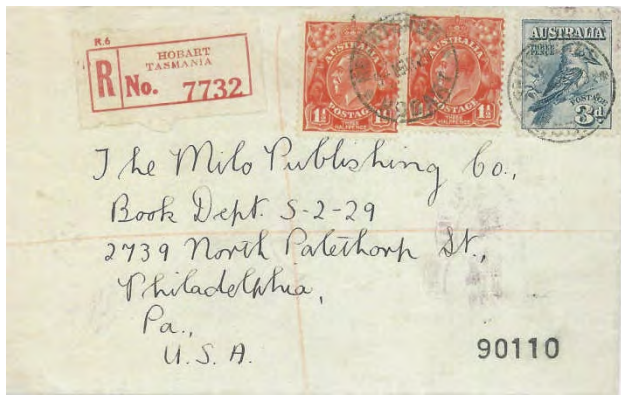 R.6
HOBART
TASMANIA
R No. 7732
AUSTRALIA
1½d 1½d
POSTAGE
THREE
HALFPENCE
AUSTRALIA
1½d
POSTAGE
THREE
HALFPENCE
HOBART
AUSTRALIA
THREE
PENCE
POSTAGE
3d
The Milo Publishing Co.,
Book Dept. S-2-29
2739 North Palethorp St.,
Philadelphia,
Pa.,
U.S.A.
90110